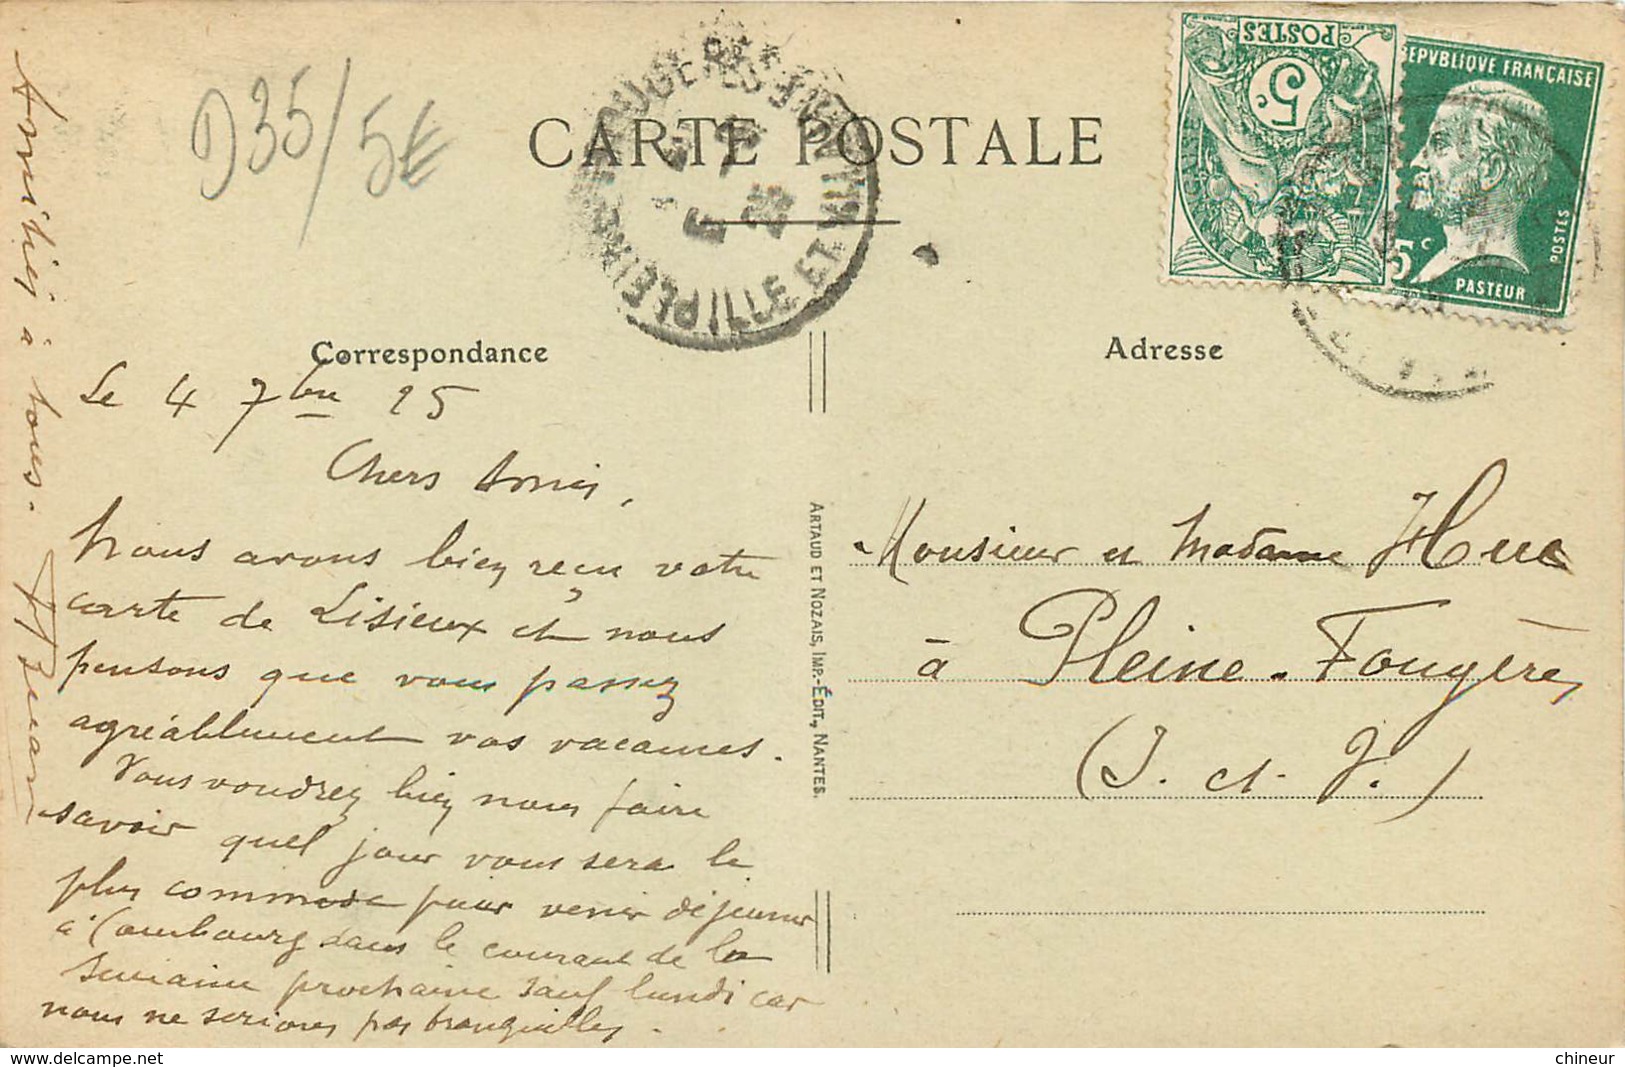 D35/5€
CARTE POSTALE
POSTES
5c
REPVBLIQUE FRANÇAISE
POSTES
5c
PASTEUR
PLEINE FOUGÈRES
ILLE ET VILAINE
Correspondance
Adresse
Le 4 7bre 25
Chers Amis,
Nous avons bien reçu votre
carte de Lisieux et nous
pensons que vous passez
agréablement vos vacances.
Vous voudrez bien nous faire
savoir quel jour vous sera le
plus commode pour venir déjeuner
à Combourg dans le courant de la
semaine prochaine sauf lundi car
nous ne serions pas tranquilles.
Amitiés à tous.
ARTAUD ET NOZAIS, IMP.-ÉDIT., NANTES.
Monsieur et Madame Huc
à Pleine-Fougères
(I. et V.)
chineur